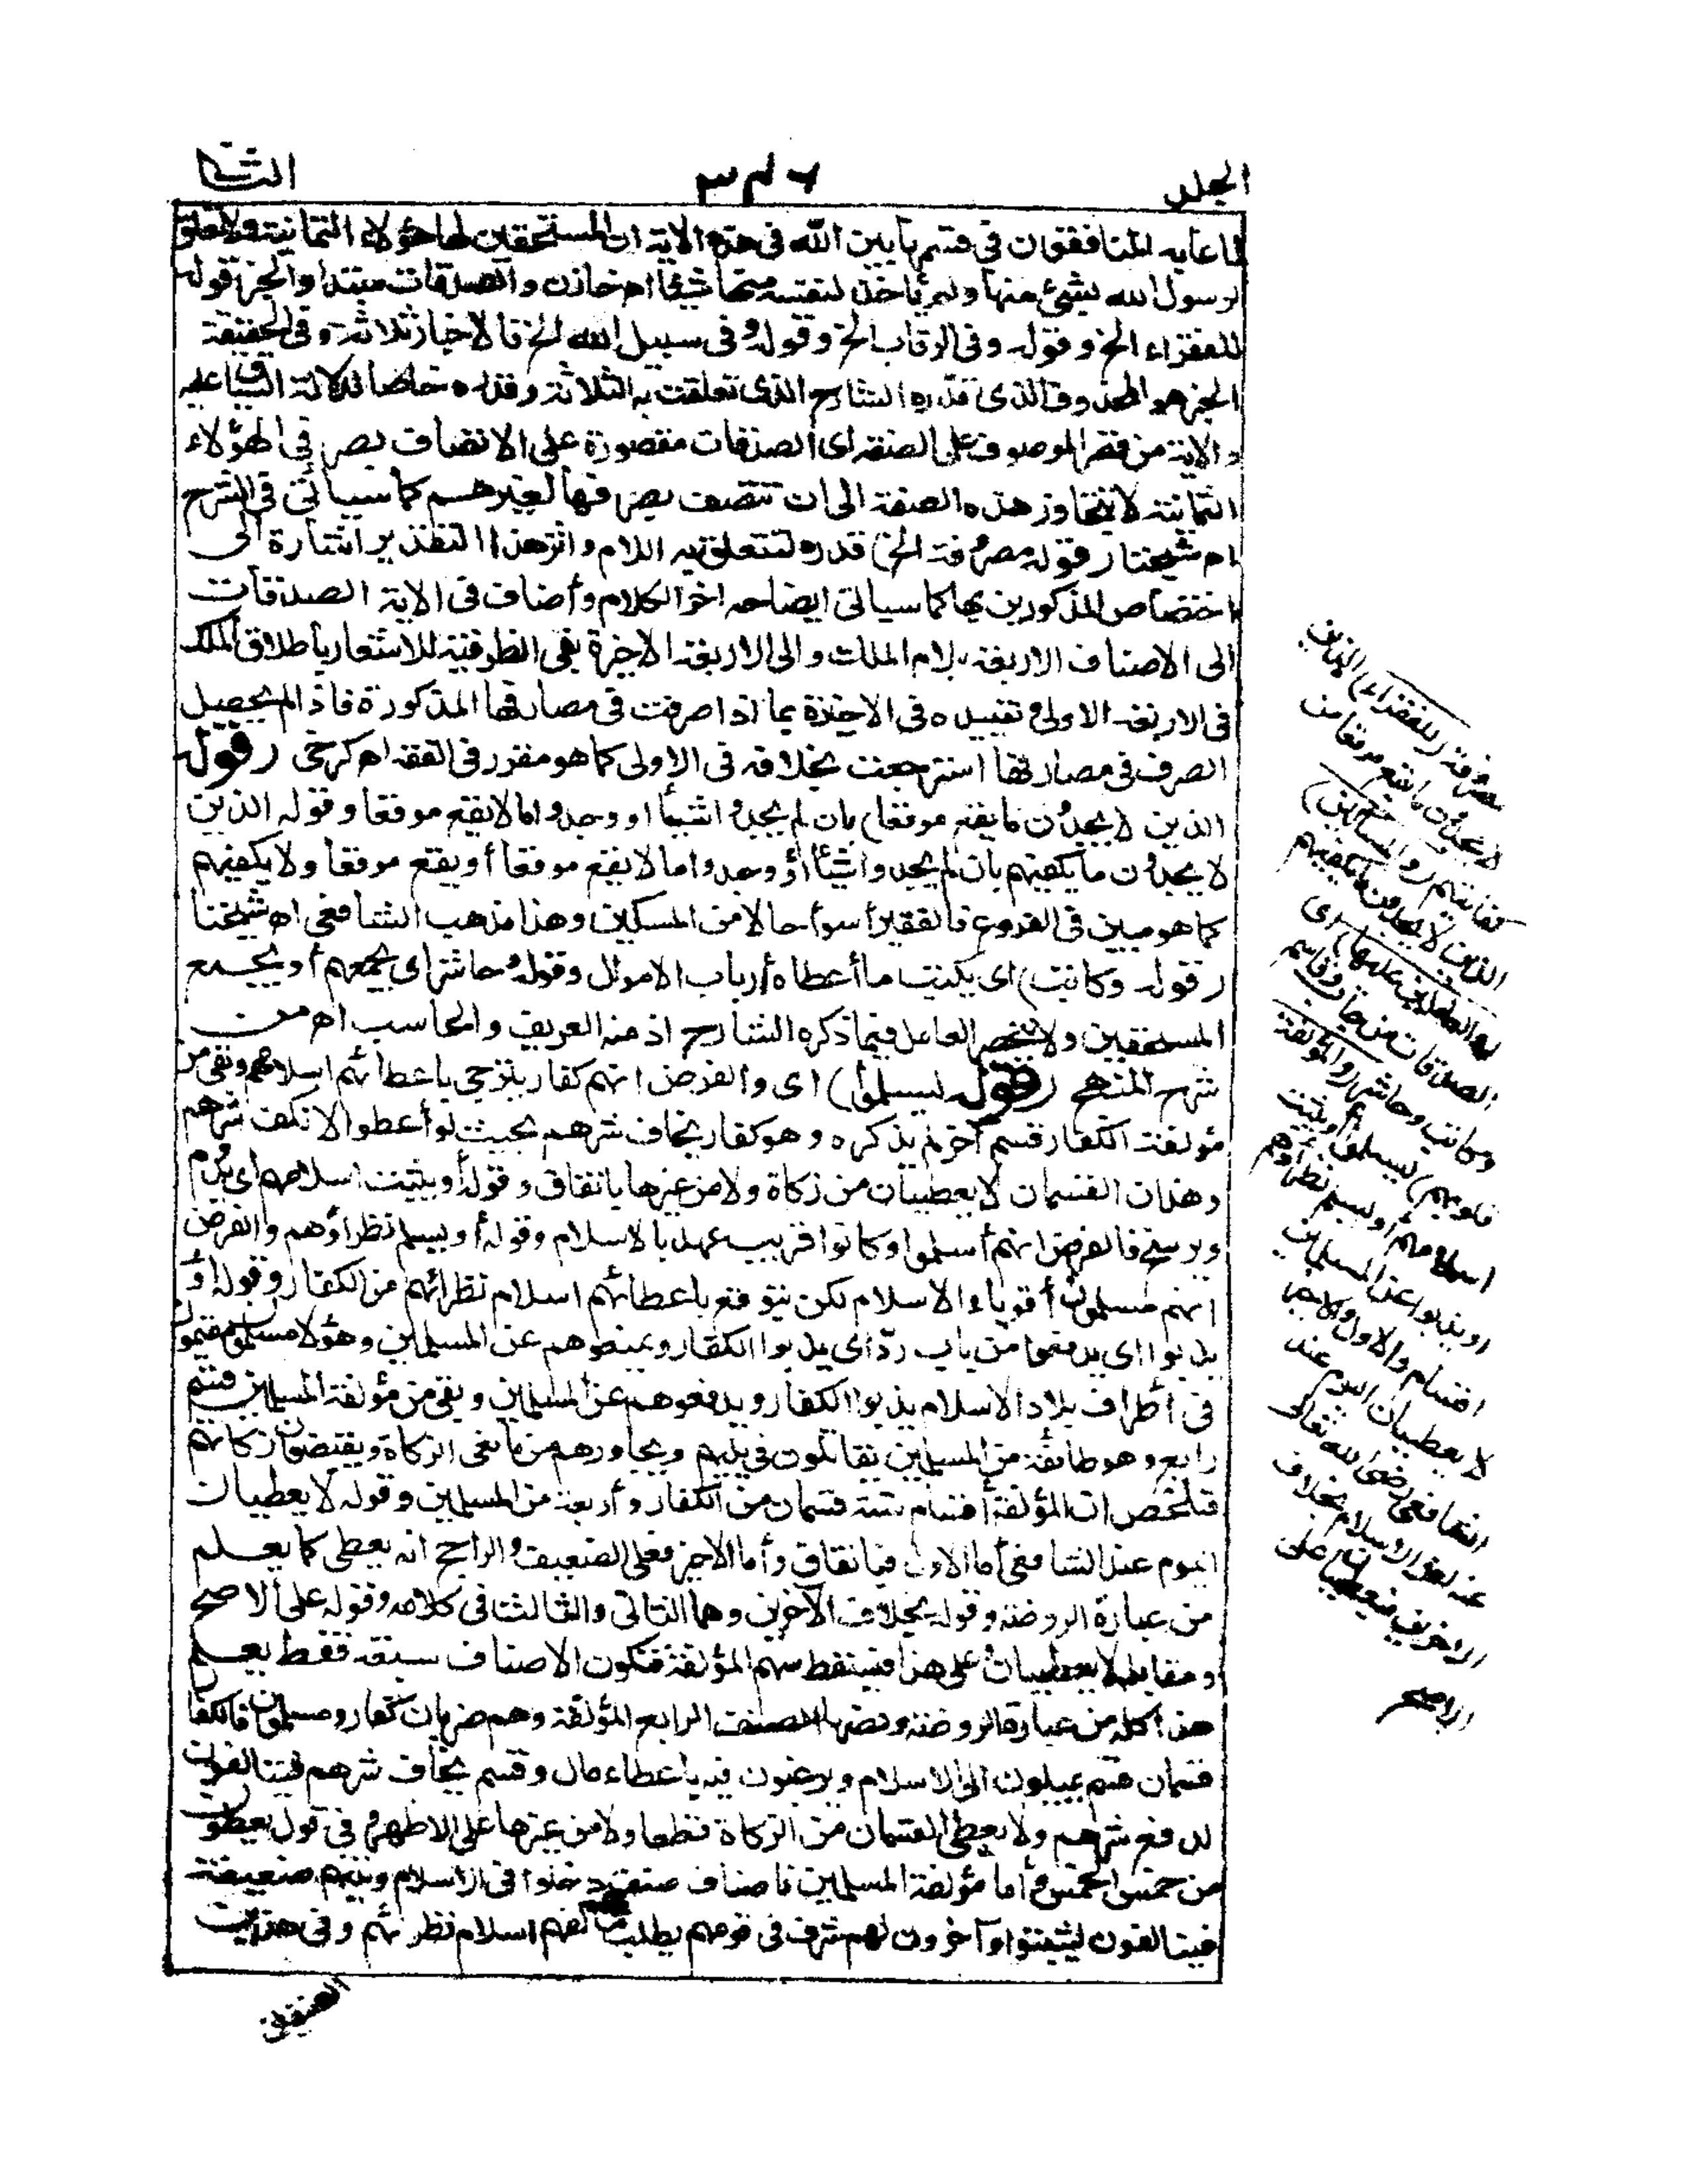 الجلد
٣٤٦
الثانى
لما عابه المنافقون فى قسمها بين الله فى هذه الاية ان المستحقين لها هؤلاء الثمانية ولا تعلق
لرسول الله بشئ منها ولم يأخذ لنفسه منها شيئا اه خازن والصدقات مبتدا والخبر قوله
للفقراء الخ وقوله وفى الرقاب الخ وقوله وفى سبيل الله الخ فالاخبار ثلاثة وفى الحقيقة
الخبر هو المحذوف الذى قدره الشارح الذى تعلقت به الثلاثة وقدره خاصا لدلالة السياق عليه
والاية من قصر الموصوف على الصفة اى الصدقات مقصورة على الاتصاف بصرفها لهؤلاء
الثمانية لا تتجاوز هذه الصفة الى ان تتصف بصرفها لغيرهم كما سيأتى فى الشرح
اه شيخنا (قوله مصروفة الخ) قدره لتتعلق به اللام واثر هذا التقدير اشارة الى
اختصاص المذكورين بها كما سياتى ايضاحه اخر الكلام وأضاف فى الاية الصدقات
الى الاصناف الاربعة بلام الملك والى الاربعة الاخيرة بفى الظرفية للاشعار باطلاق الملك
فى الاربعة الاولى وتقييده فى الاخيرة بما اذا صرفت فى مصارفها المذكورة فاذا لم يحصل
الصرف فى مصارفها استرجعت بخلافه فى الاولى كما هو مقرر فى الفقه اه كرخى (قوله
الذين لا يجدون ما يقع موقعا) بان لم يجدوا شيئا او وجدوا ما لا يقع موقعا وقوله الذين
لا يجدون ما يكفيهم بان لم يجدوا شيئا أو وجدوا ما لا يقع موقعا أو يقع موقعا ولا يكفيهم
كما هو مبين فى الفروع فالفقير أسوأ حالا من المسكين وهذا مذهب الشافعى اه شيخنا
(قوله وكاتب) اى يكتب ما أعطاه أرباب الاموال وقوله وحاشر اى يجمعهم أو يجمع
المستحقين ولا ينحصر العامل فيما ذكره الشارح اذ منه العريف والحاسب اه من
شرح المنهج (قوله ليسلموا) اى والفرض انهم كفار يترجى باعطائهم اسلامهم وبقى من
مؤلفة الكفار قسم آخر لم يذكره وهو كفار يخاف شرهم بحيث لو أعطوا لانكف شرهم
وهذان القسمان لا يعطيان من زكاة ولا من غيرها باتفاق وقوله أو يثبت اسلامهم اى يدوم
ويرسخ فالفرض انهم أسلموا وكانوا قريب عهد بالاسلام وقوله أو يسلم نظراؤهم والفرض
انهم مسلمون أقوياء الاسلام لكن يتوقع باعطائهم اسلام نظرائهم من الكفار وقوله أو
يذبوا اى يدفعوا من باب ردّ اى يذبوا الكفار ويمنعوهم عن المسلمين وهؤلاء مسلمون مقيمون
فى أطراف بلاد الاسلام يذبوا الكفار ويدفعوهم عن المسلمين وبقى من مؤلفة المسلمين قسم
رابع وهو طائفة من المسلمين يقاتلون من يليهم ويجاورهم من مانعى الزكاة ويقبضون زكاتهم
فتلخص ان المؤلفة أقسام ستة قسمان من الكفار وأربعة من المسلمين وقوله لا يعطيان
اليوم عند الشافعى أما الاول فباتفاق وأما الاخير فعلى الضعيف والراجح انه يعطى كما يعلم
من عبارة الروضة وقوله بخلاف الآخرين وهما الثانى والثالث فى كلامه وقوله على الاصح
ومقابله لا يعطيان على هذا فيسقط سهم المؤلفة فتكون الاصناف سبعة فقط يعلم
هذا كله من عبارة الروضة ونصها الصنف الرابع المؤلفة وهم ضربان كفار ومسلمون فالكفار
قسمان قسم يميلون الى الاسلام ويرغبون فيه باعطاء مال وقسم يخاف شرهم فيتالفون
لدفع شرهم ولا يعطى القسمان من الزكاة قطعا ولا من غيرها على الاظهر وفى قول يعطون
من خمس الخمس وأما مؤلفة المسلمين فاصناف صنف دخلوا فى الاسلام ونيتهم ضعيفة
فيتالفون ليثبتوا وآخرون لهم شرف فى قومهم يطلب بتألفهم اسلام نظرائهم وفى هذين
الصنفين
مصروفة (للفقراء) الذين
لا يجدون ما يقع موقعا من
كفايتهم (والمساكين)
الذين لا يجدون ما يكفيهم
(والعاملين عليها) اى
الصدقات من جاب وقاسم
وكاتب وحاشر (والمؤلفة
قلوبهم) ليسلموا أو يثبت
اسلامهم أو يسلم نظراؤهم
او يذبوا عن المسلمين
اقسام والاول والاخير
لا يعطيان اليوم عند
الشافعى رضى الله تعالى
عنه لعز الاسلام بخلاف
الاخرين فيعطيان على
الاصح